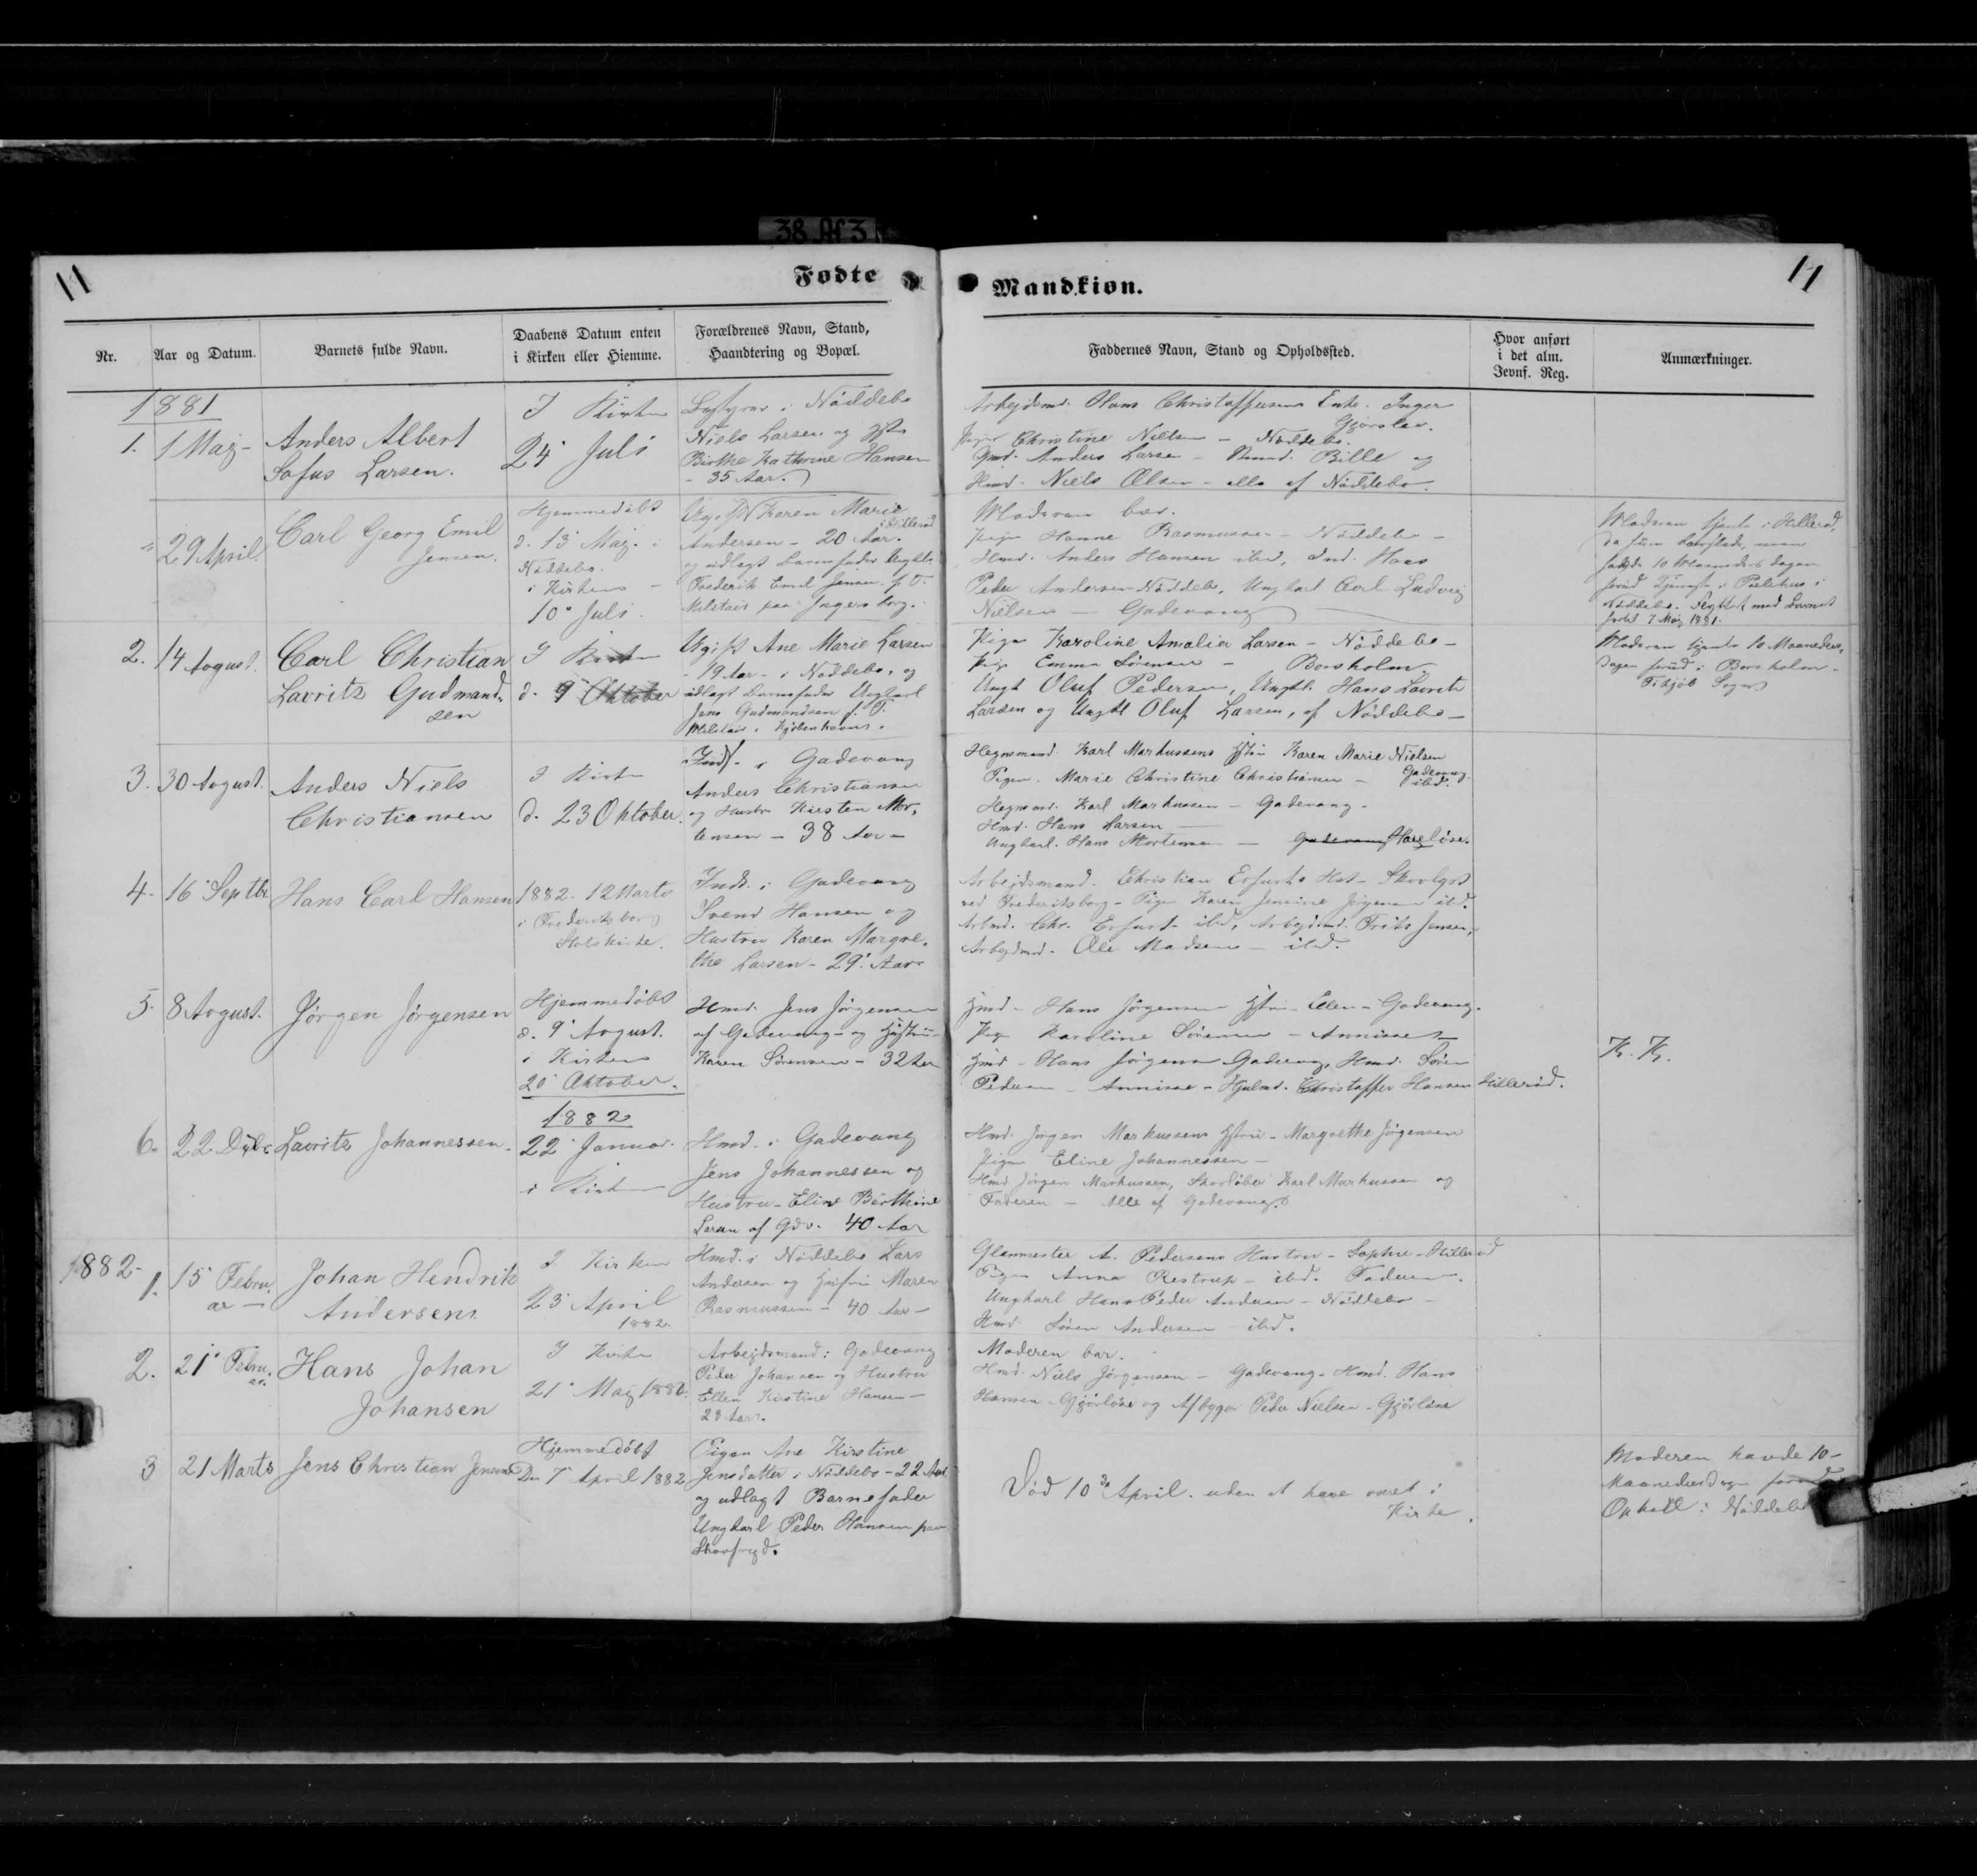 38 Af 3
11
Fødte
Mandkiøn.
11
Nr.
Aar og Datum.
Barnets fulde Navn.
Daabens Datum enten
i Kirken eller Hiemme.
Forældrenes Navn, Stand,
Haandtering og Bopæl.
Faddernes Navn, Stand og Opholdssted.
Hvor anført
i det alm.
Jevnf. Reg.
Anmærkninger.
1881
1.
1 Maj -
Anders Albert
Sofus Larsen.
I Kirken
24 Juli
i Nøddebo
Niels Larsen og
Birthe Kathrine Hansen
- 35 Aar.
Arbejdsmd. Hans Christoffersens Enke. Inger
Gjørslev.
Pigen Christine Nielsen - Nøddebo.
Gmd. Anders Larsen - Bille og
Hmd. Niels Olsen - alle af Nøddebo.
29 April.
Carl Georg Emil
Jensen.
Hjemmedøbt
d. 13 Maj. i
Nøddebo.
i Kirken -
10 Juli.
Ugift Karen Marie
i Hillerød
Andersen - 20 Aar.
og udlagt Barnefader Ungkl.
Frederik Emil Jensen p. t.
Militair paa Jægersborg.
Moderen bar.
Pigen Hanne Rasmussen - Nøddebo -
Hmd. Anders Hansen ibd, Ind. Hans
Peder Andersen Nøddebo, Ungkarl Carl Ludvig
Nielsen - Gadevang
Moderen tjente i Hillerød,
da hun besvangredes, men
havde 10 Maanedersdagen
forud Tjeneste i
Nøddebo. med Barnet
7 Maj 1881.
2.
14 August.
Carl Christian
Lavritz Gudmand-
sen
I Kirken
d. 9 Oktober
Ugift Ane Marie Larsen
- 19 Aar - i Nøddebo, og
udlagt Barnefader Ungkarl
Jens Gudmandsen p. T.
Militair i Kjøbenhavn.
Pigen Karoline Amalie Larsen - Nøddebo -
Pige Emma Sørensen - Borsholm
Ungk Oluf Pedersen, Ungkl. Hans Lavritz
Larsen og Ungkl Oluf Larsen, af Nøddebo -
Moderen tjente 10 Maaneders-
dagen forud i Borsholm -
Tikjøb Sogn
3.
30 August.
Anders Niels
Christiansen
I Kirken
d. 23 Oktober.
Inds. i Gadevang
Anders Christiansen
og Hustru Kirsten Mor-
tensen - 38 Aar -
Hegnsmand Karl Markussens Hstru Karen Marie Nielsen
Gadevang.
Pigen Marie Christine Christiansen - ibd.
Hegnsmd. Karl Markussen - Gadevang -
Hmd. Hans Larsen
Ungkarl. Hans Mortensen - Gadevang Harløse.
4.
16 Septbr.
Hans Carl Hansen
1882. 12 Marts
i Frederiksborg
Slotskirke.
Inds. i Gadevang
Svend Hansen og
Hustru Karen Margre-
the Larsen - 29 Aar
Arbejdsmand. Christian Erfurts Hst -
ved Frederiksborg - Pigen Karen Jensine Jørgensen ibd.
Arbmd. Chr. Erfurt ibd, Arbejdsmd. Frits Jensen,
Arbejdmd. Ole Madsen - ibd.
5.
8 August.
Jørgen Jørgensen
Hjemmedøbt
d. 9 August.
i Kirken
20 Oktober.
Hmd. Jens Jørgensen
af Gadevang og Hustru
Karen Sørensen - 32 Aar
Gmd - Hans Jørgensen Hstru Ellen - Gadevang.
Pige Karoline Sørensen - Annisse -
Gmd - Hans Jørgensen Gadevang, Hmd. Søren
Pedersen - Annisse - Hjulmd. Christoffer Hansen Hillerød.
K. K.
6.
22 Dcbr.
Lavritz Johannessen.
1882
22 Januar.
i Kirken
Hmd. i Gadevang
Jens Johannessen og
Hustru - Eline Birthine
Larsen af Gdv. 40 Aar
Hmd. Jørgen Markussens Hstru - Margrethe Jørgensen
Pigen Eline Johannessen -
Hmd Jørgen Markussen, Skovløber Karl Markussen og
Faderen - Alle af Gadevang.
1882
1.
15 Febru.
ar -
Johan Hendrik
Andersen
I Kirken
23 April
1882.
Hmd. i Nøddebo Lars
Andersen og Hustru Maren
Rasmussen - 40 Aar -
Glasmester A. Pedersens Hustru - Sophie - Hillerød
Pigen Anna Restrup - ibd. Faderen.
Ungkarl Hans Peder Andersen - Nøddebo -
Hmd. Søren Andersen ibd.
2.
21 Febru.
ar.
Hans Johan
Johansen
I Kirken
21 Maj 1882
Arbejdsmand i Gadevang
Peder Johansen og Hustru
Ellen Kirstine Hansen -
28 Aar.
Moderen bar.
Hmd. Niels Jørgensen - Gadevang - Hmd. Hans
Hansen - Gjørløse og Afbygger Peder Nielsen - Gjørløse
3
21 Marts
Jens Christian Jensen
Hjemmedøbt
Den 7 April 1882
Pigen Ane Kirstine
Jensdatter i Nøddebo - 22 Aar
og udlagt Barnefader
Ungkarl Peder Hansen paa
Død 10de April. uden at have været i
Kirke.
Moderen havde 10-
Maanedersdagen forud
Ophold i Nøddebo